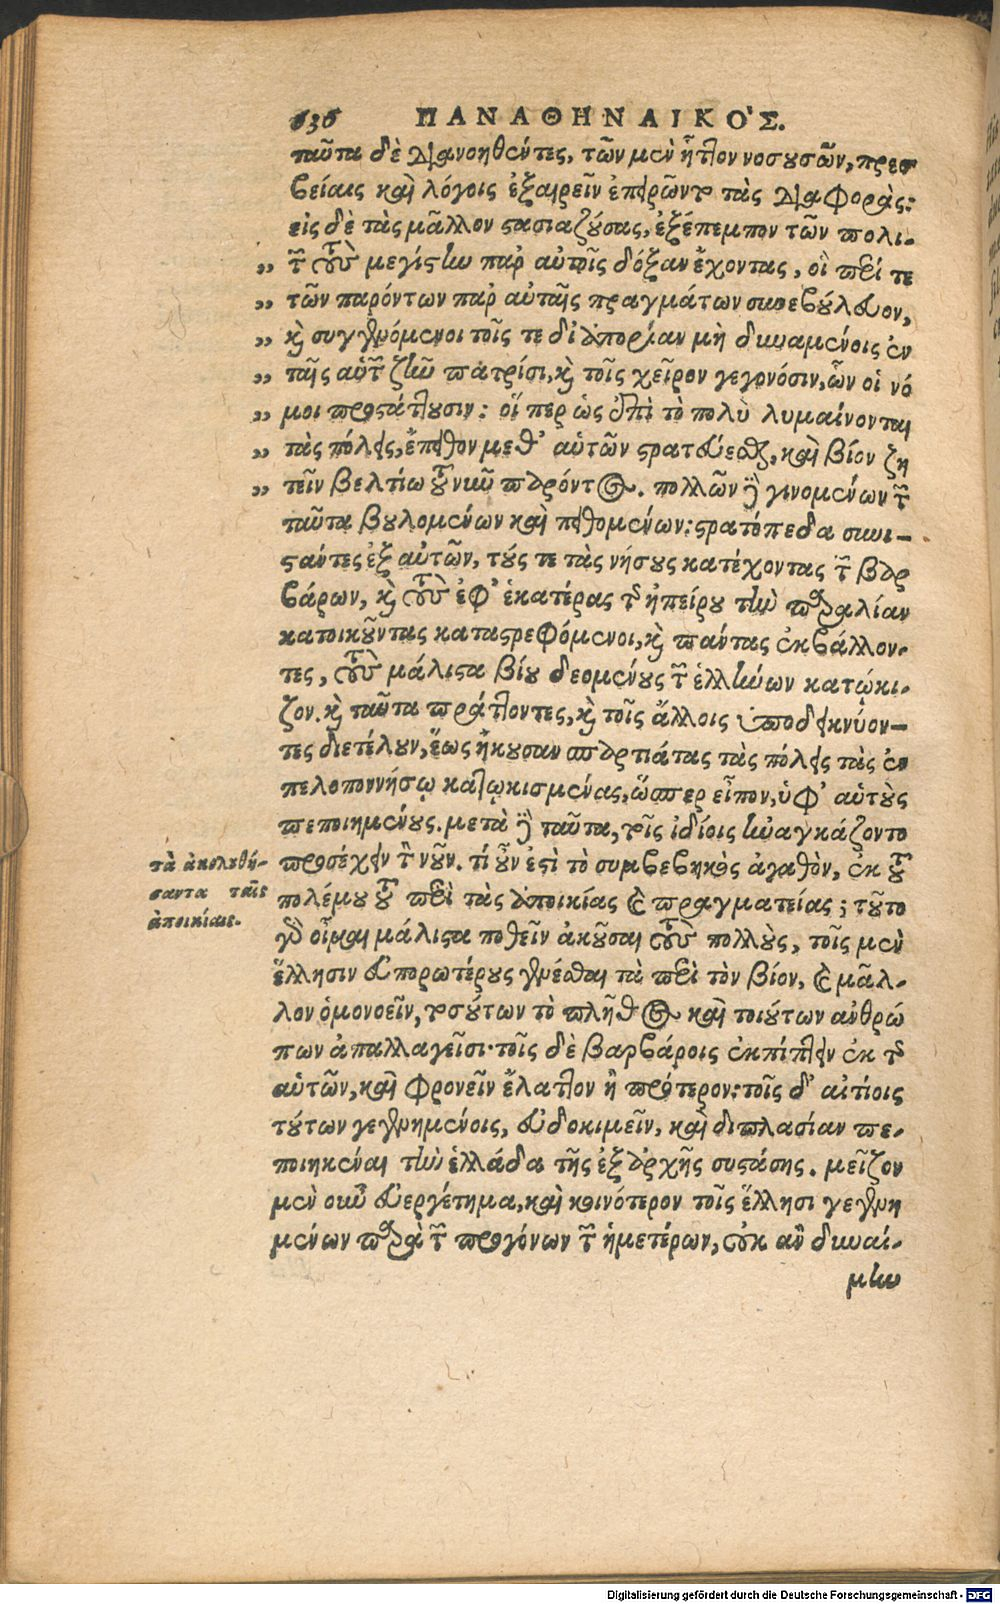 636 ΠΑΝΑΘΗΝΑΙΚΟ'Σ.
ταῦτα δὲ διανοηθέντες, τῶν μὲν ἧττον νοσουσῶν, πρεσ
βείαις καὶ λόγοις ἐξαιρεῖν ἐπειρῶντο τὰς διαφοράς:
εἰς δὲ τὰς μᾶλλον στασιαζούσας, ἐξέπεμπον τῶν πολι-
„ τῶν τοὺς μεγίστην παρ' αὐτοῖς δόξαν ἔχοντας, οἳ περί τε
„ τῶν παρόντων παρ' αὐταῖς πραγμάτων συνεβούλευον,
„ καὶ συγγενόμενοι τοῖς τε δι' ἀπορίαν μὴ δυναμένοις ἐν
„ ταῖς αὑτῶν ζῆν πατρίσι, καὶ τοῖς χεῖρον γεγονόσιν, ὧν οἱ νό
„ μοι προστάττουσιν: οἵ περ ὡς ἐπὶ τὸ πολὺ λυμαίνονται
„ τὰς πόλεις, ἔπειθον μεθ' αὑτῶν στρατεύεσθαι, καὶ βίον ζη
„ τεῖν βελτίω τοῦ νῦν παρόντος. πολλῶν δὲ γινομένων τῶν
ταῦτα βουλομένων καὶ πειθομένων: στρατόπεδα συνι-
στάντες ἐξ αὐτῶν, τούς τε τὰς νήσους κατέχοντας τῶν βαρ
βάρων, καὶ τοὺς ἐφ' ἑκατέρας τῆς ἠπείρου τὴν παραλίαν
κατοικοῦντας καταστρεφόμενοι, καὶ πάντας ἐκβάλλον-
τες, τοὺς μάλιστα βίου δεομένους τῶν ἑλλήνων κατῴκι-
ζον. καὶ ταῦτα πράττοντες, καὶ τοῖς ἄλλοις ὑποδεικνύον-
τες διετέλουν, ἕως ἤκουσαν σπαρτιάτας τὰς πόλεις τὰς ἐν
πελοποννήσῳ κατῳκισμένας, ὥσπερ εἶπον, ὑφ' αὑτοὺς
πεποιημένους. μετὰ δὲ ταῦτα, τοῖς ἰδίοις ἠναγκάζοντο
προσέχειν τὸν νοῦν. τί οὖν ἐστὶ τὸ συμβεβηκὸς ἀγαθὸν, ἐκ τοῦ
πολέμου τοῦ περὶ τὰς ἀποικίας καὶ πραγματείας; τοῦτο
γὰρ οἶμαι μάλιστα ποθεῖν ἀκοῦσαι τοὺς πολλοὺς, τοῖς μὲν
ἕλλησιν εὐπορωτέρους γενέσθαι τὰ περὶ τὸν βίον, καὶ μᾶλ-
λον ὁμονοεῖν, τοσούτων τὸ πλῆθος καὶ τοιούτων ἀνθρώ
πων ἀπαλλαγεῖσι· τοῖς δὲ βαρβάροις ἐκπίπτειν ἐκ τῆς
αὑτῶν, καὶ φρονεῖν ἔλαττον ἢ πρότερον: τοῖς δ' αἰτίοις
τούτων γεγενημένοις, εὐδοκιμεῖν, καὶ διπλασίαν πε-
ποιηκέναι τὴν ἑλλάδα τῆς ἐξ ἀρχῆς συστάσης. μεῖζον
μὲν οὖν εὐεργέτημα, καὶ κοινότερον τοῖς ἕλλησι γεγενη
μένων παρὰ τῶν προγόνων τῶν ἡμετέρων, οὐκ ἂν δυναί-
μην
τὰ ἀκολουθή-
σαντα ταῖς
ἀποικίαις.
Digitalisierung gefördert durch die Deutsche Forschungsgemeinschaft - DFG